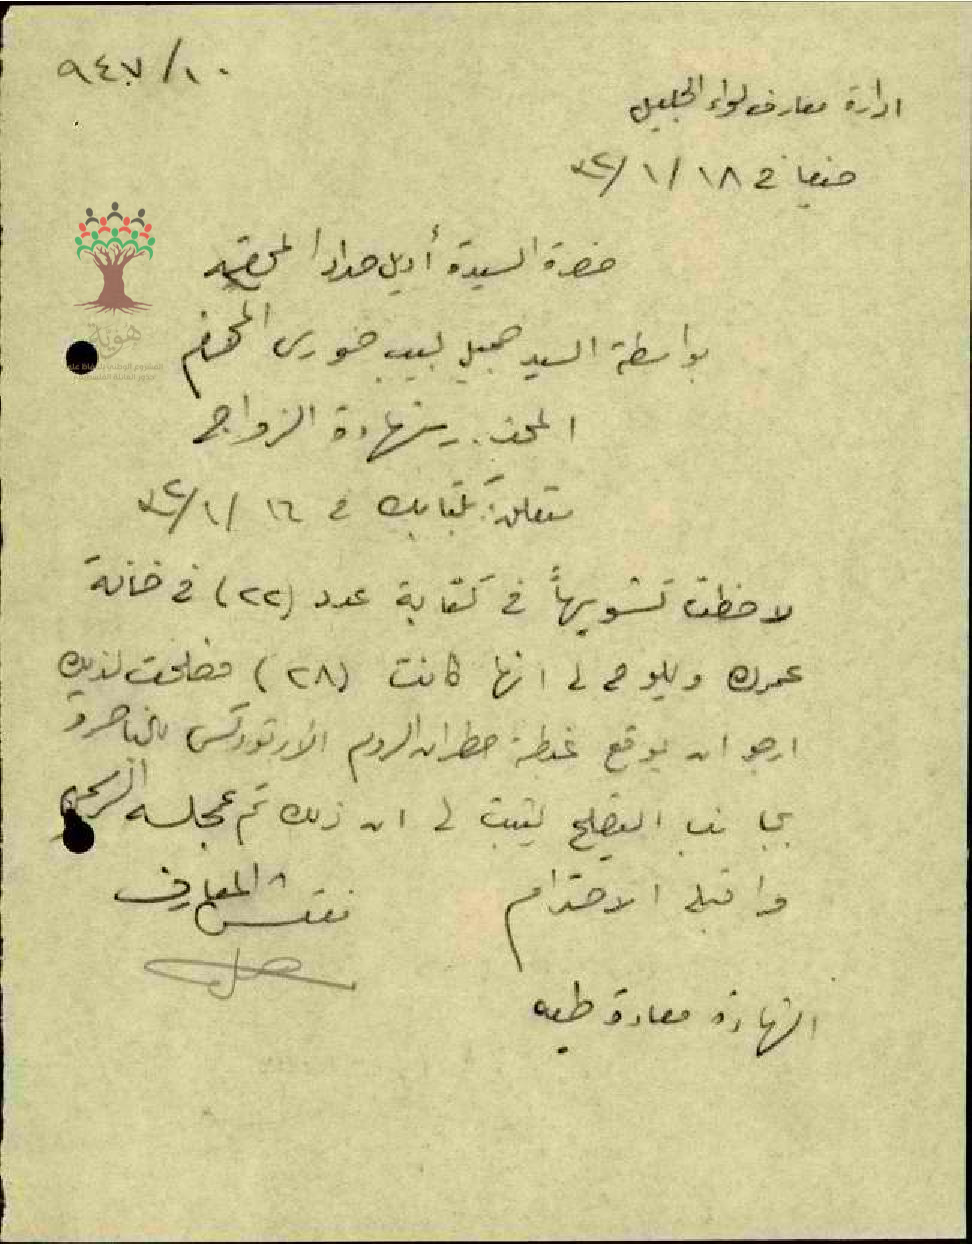 ٩٤٧/١٠
ادارة معارف لواء الجليل
حيفا في ١٨/١/٤٢
حضرة السيدة أديل حداد المحترمة
بواسطة السيد جميل لبيب خوري المحترم
شهادة الزواج
كتابك في ١٦/١/٤٢
لاحظت تشويهاً في كتابة عدد (٢٢) في خانة
عمرك ويلوح لي انها كانت (٢٨) فصلحت لذلك
ارجو ان يوقع غبطة مطران الروم الأرثوذكس بالناصرة
بجانب التصليح ليثبت لي ان ذلك تم بمجلسه الرسمي
واقبلي الاحترام
مفتش المعارف
الشهادة معادة طيه
هوية